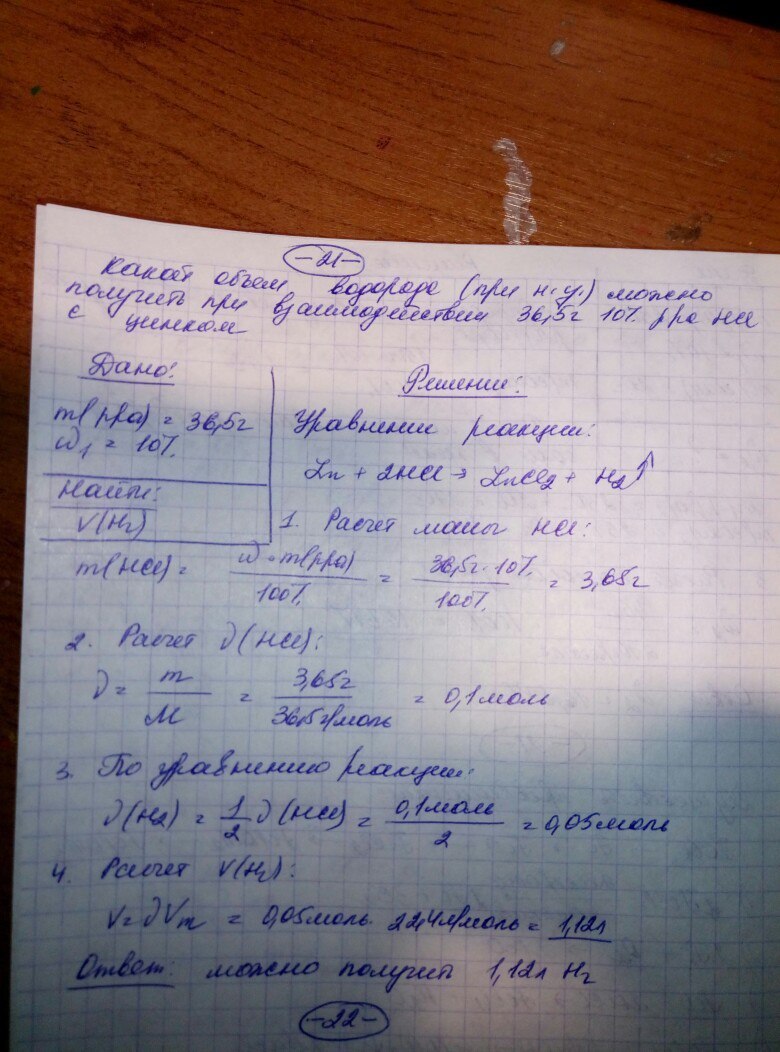 -21-
какой объем водорода (при н.у.) можно
получить при взаимодействии 36,5г 10% рра HCl
с цинком
Дано:
m(рра) = 36,5г
ω₁ = 10%
Найти:
V(H₂)
Решение:
Уравнение реакции:
Zn + 2HCl → ZnCl₂ + H₂↑
1. Расчет массы HCl:
m(HCl) = ω · m(рра) / 100% = 36,5г · 10% / 100% = 3,65г
2. Расчет ν(HCl):
ν = m / M = 3,65г / 36,5г/моль = 0,1моль
3. По уравнению реакции:
ν(H₂) = 1/2 ν(HCl) = 0,1моль / 2 = 0,05моль
4. Расчет V(H₂):
V = νVm = 0,05моль · 22,4л/моль = 1,12л
Ответ: можно получить 1,12л H₂
-22-